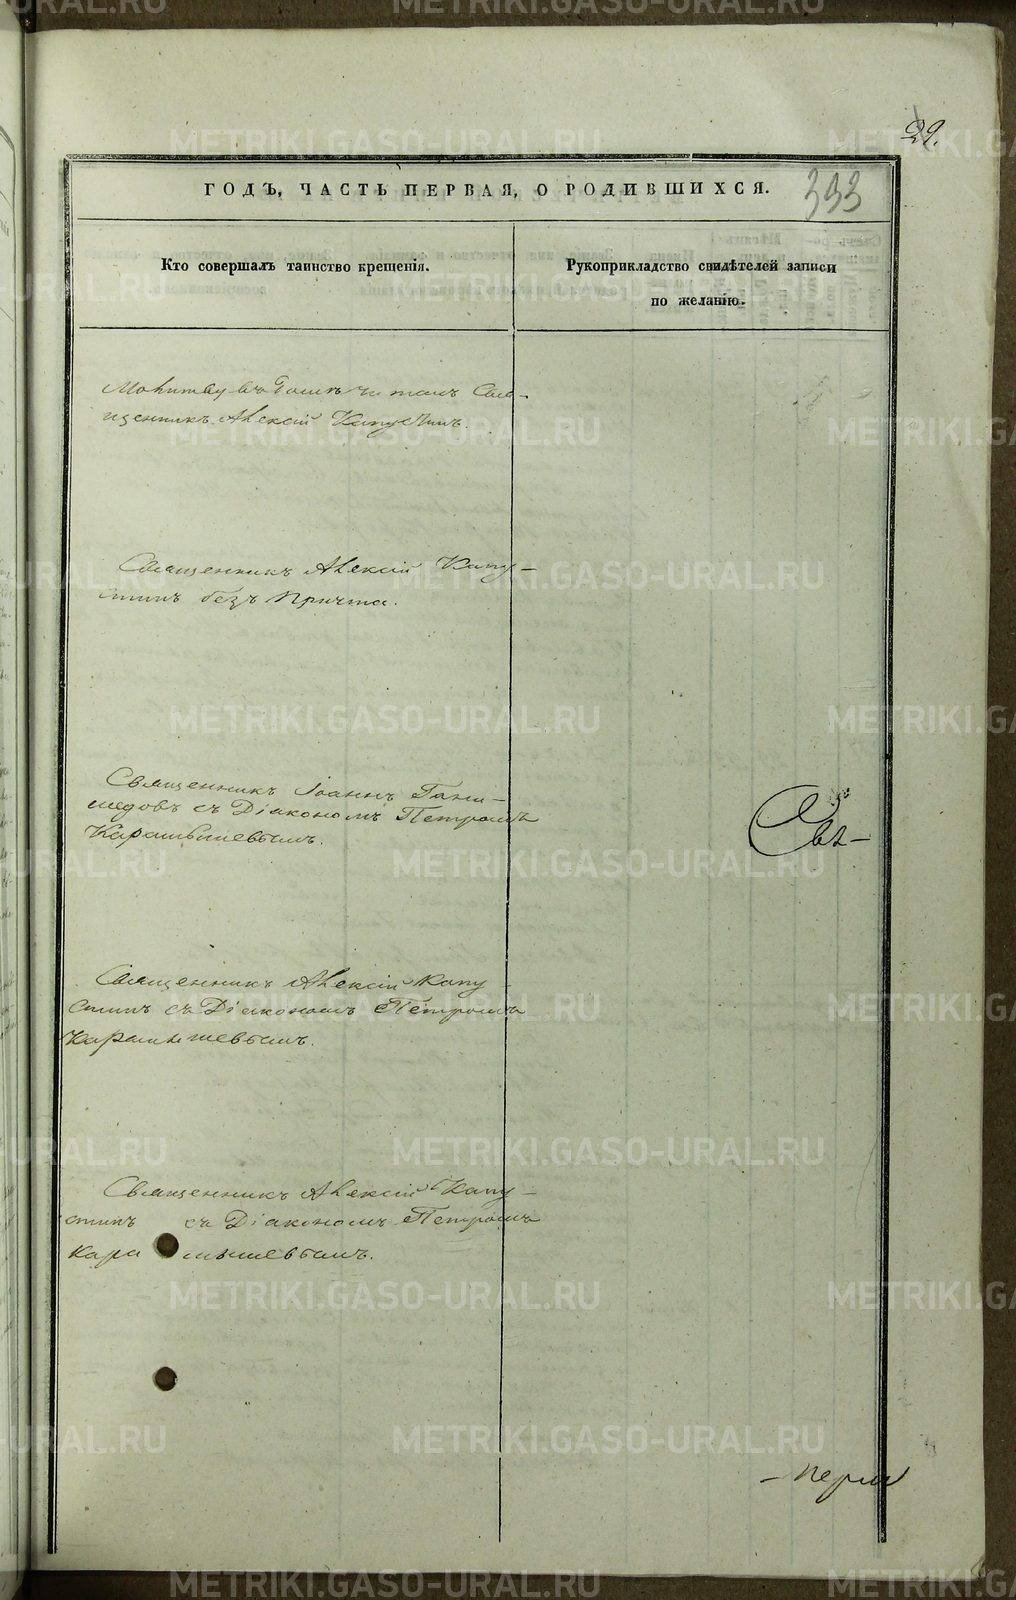 29.
333
ГОДЪ, ЧАСТЬ ПЕРВАЯ, О РОДИВШИХСЯ.
Кто совершалъ таинство крещенія.
Рукоприкладство свидѣтелей записи
по желанію.
Молитву въ домѣ читалъ Свя-
щенникъ Алексій Капустинъ.
Священникъ Алексій Капу-
стинъ безъ Причта.
Священникъ Іоаннъ Гани-
медовъ съ Діакономъ Петромъ
Карамышевымъ.
Священникъ Алексій Капу
стинъ съ Діакономъ Петромъ
Карамышевымъ.
Священникъ Алексій Капу-
стинъ съ Діакономъ Петромъ
Карамышевымъ.
METRIKI.GASO-URAL.RU